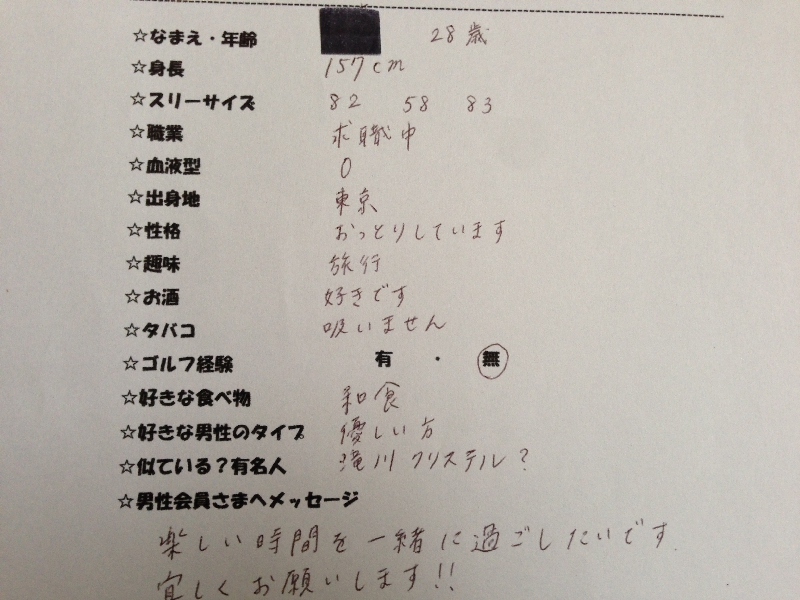 ☆なまえ・年齢 28歳
☆身長 157cm
☆スリーサイズ 82 58 83
☆職業 求職中
☆血液型 O
☆出身地 東京
☆性格 おっとりしています
☆趣味 旅行
☆お酒 好きです
☆タバコ 吸いません
☆ゴルフ経験 有・無
☆好きな食べ物 和食
☆好きな男性のタイプ 優しい方
☆似ている?有名人 滝川クリステル?
☆男性会員さまへメッセージ
楽しい時間を一緒に過ごしたいです.
宜しくお願いします!!